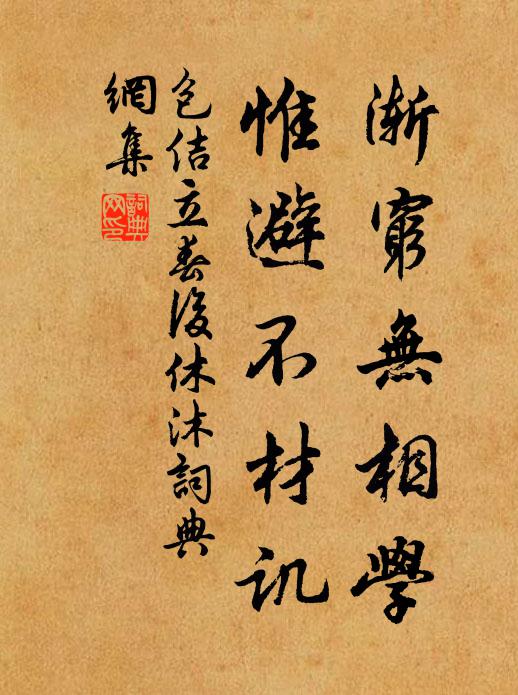 漸窮無相學
惟避不材讥
包佶立春後休沐詞典
網集
詞典
网印